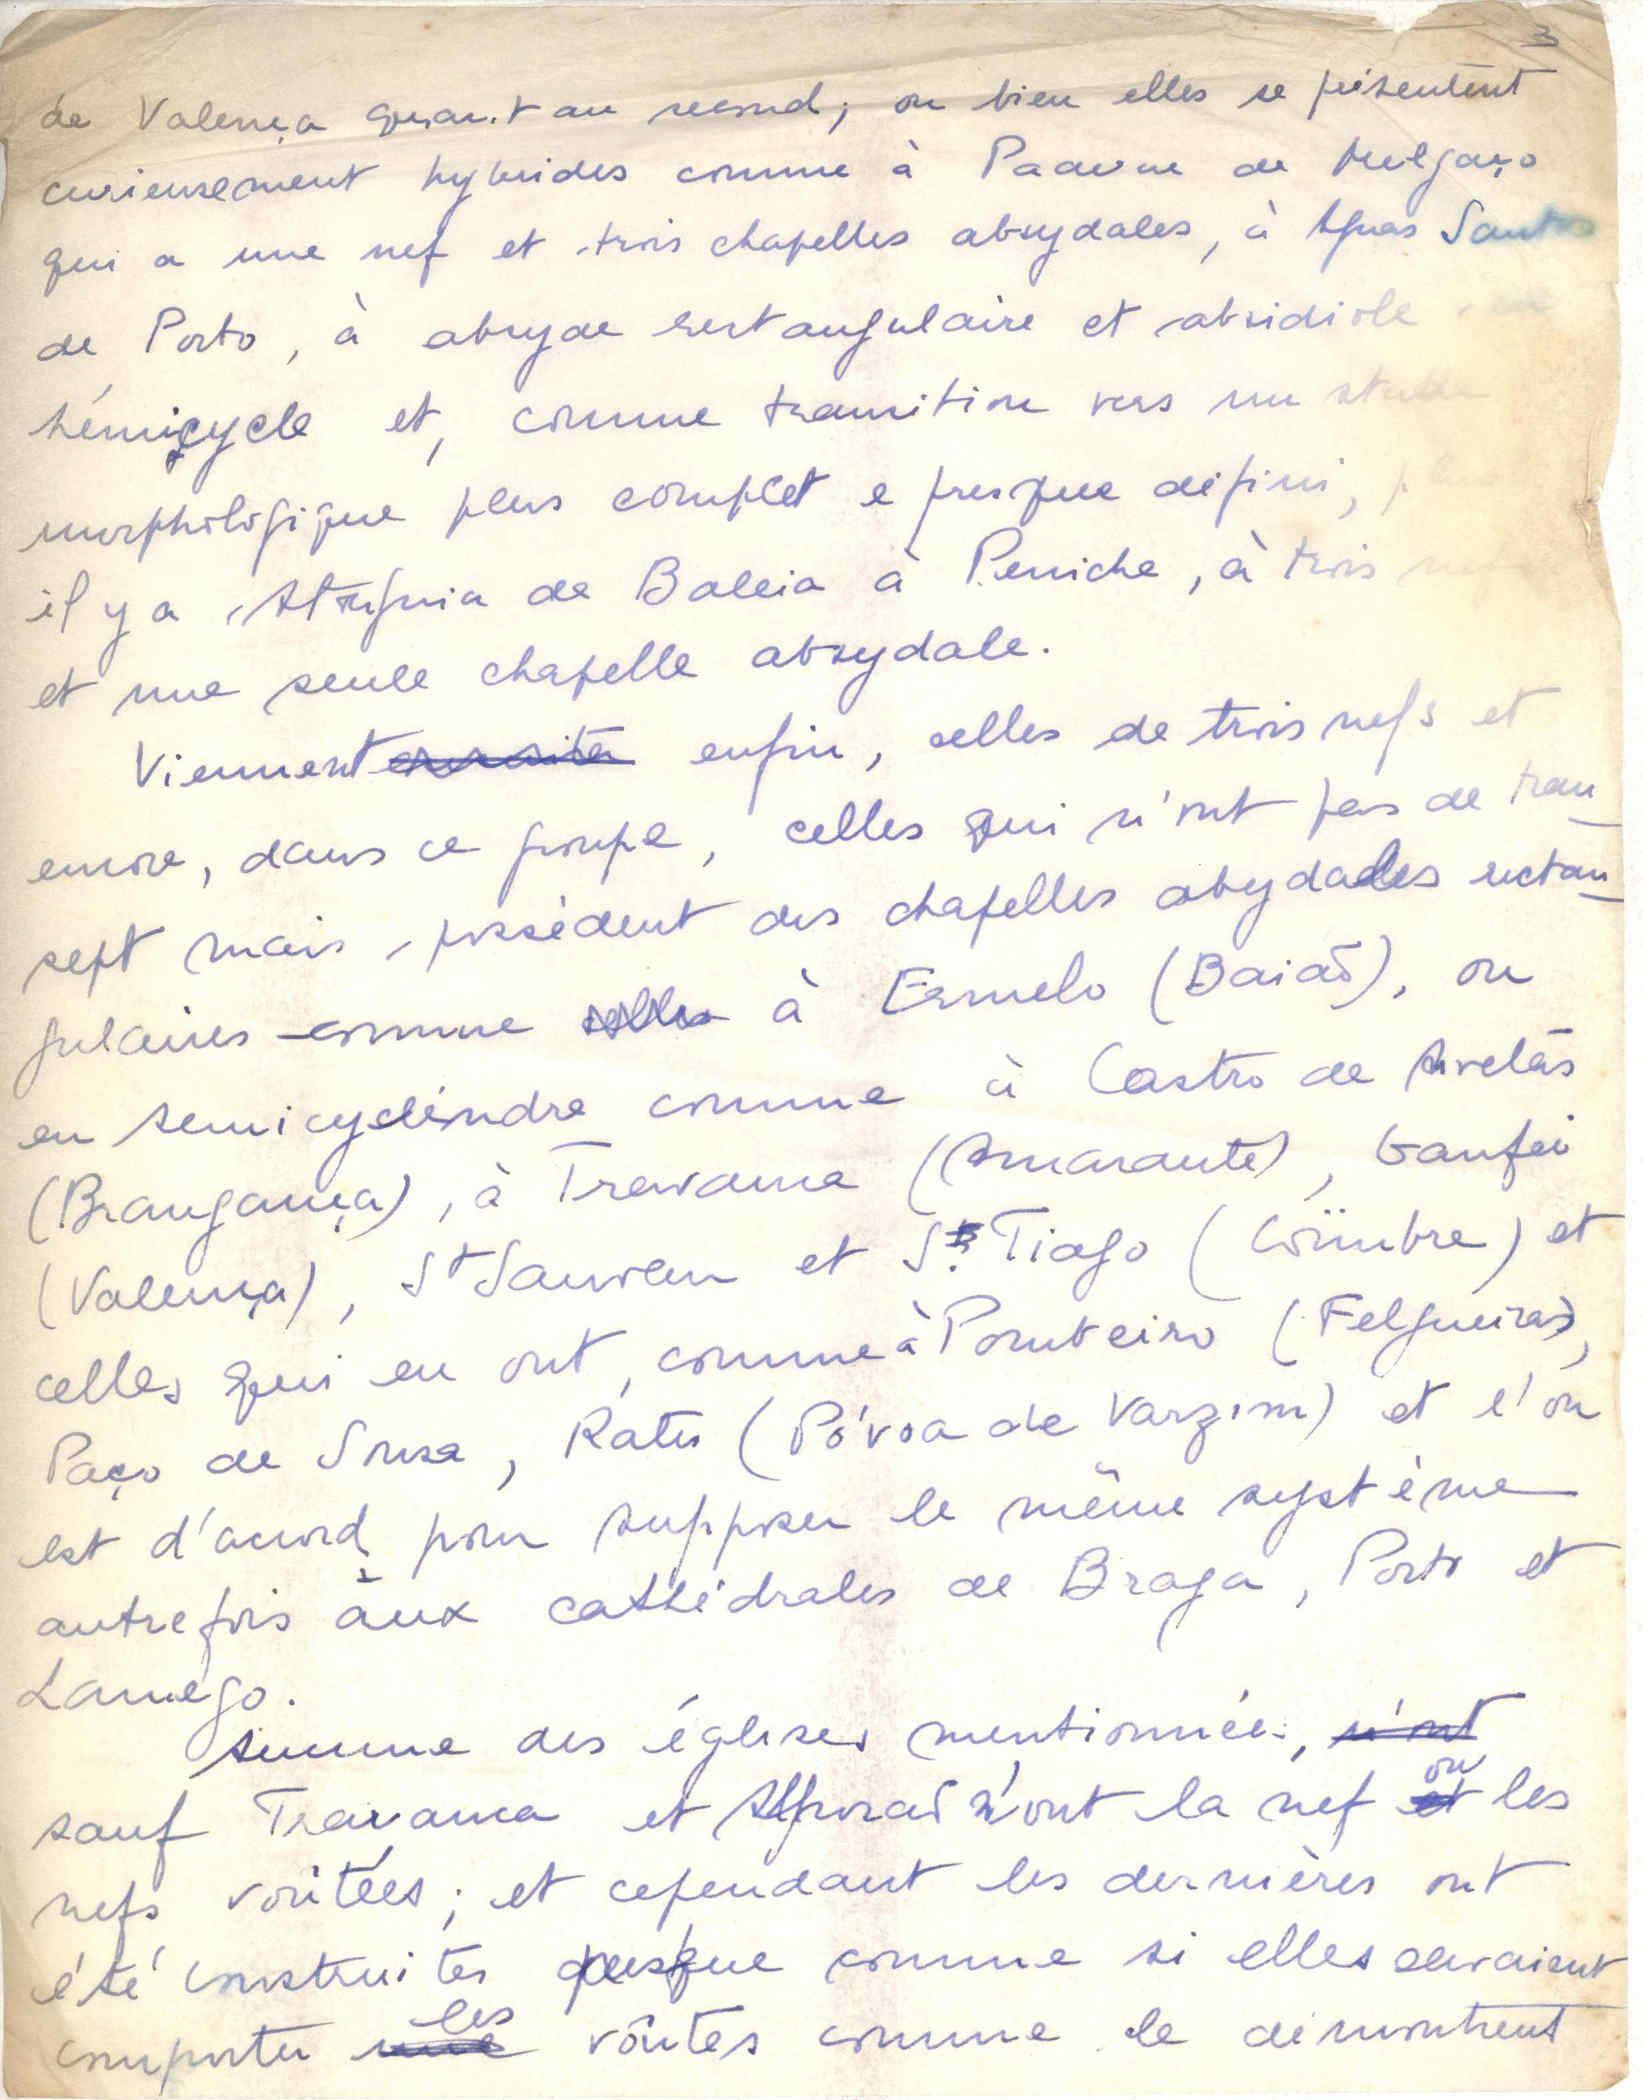 3
de Valença quant au second; ou bien elles se présentent
curieusement hybrides comme à Paderne de Melgaço
qui a une nef et trois chapelles absydales, à Aguas Santas
de Porto, à absyde rectangulaire et absidiole en
hémicycle et, comme transition vers un stade
morphologique plus complet e presque défini,
il y a Atouguia de Baleia à Peniche, à trois nefs
et une seule chapelle absydale.
Viennent ensuite enfin, celles de trois nefs et
encore, dans ce groupe, celles qui n'ont pas de tran_
sept mais possèdent des chapelles absydales rectan_
gulaires comme celles à Ermelo (Baião), ou
en semicylindre comme à Castro de Avelãs
(Brangança), à Travanca (Amarante), Ganfei
(Valença), St Sauveur et S. Tiago (Coïmbre) et
celles qui en ont, comme à Pombeiro (Felgueiras),
Paço de Sousa, Rates (Póvoa de Varzim) et l'on
est d'accord pour supposer le même système
autrefois aux cathédrales de Braga, Porto et
Lamego.
Aucune des églises mentionnées, n'ont
sauf Travanca et Alfrosão n'ont la nef et ou les
nefs voûtées; et cependant les dernières ont
été construites presque comme si elles devaient
comporter une les voûtes comme le démontrent